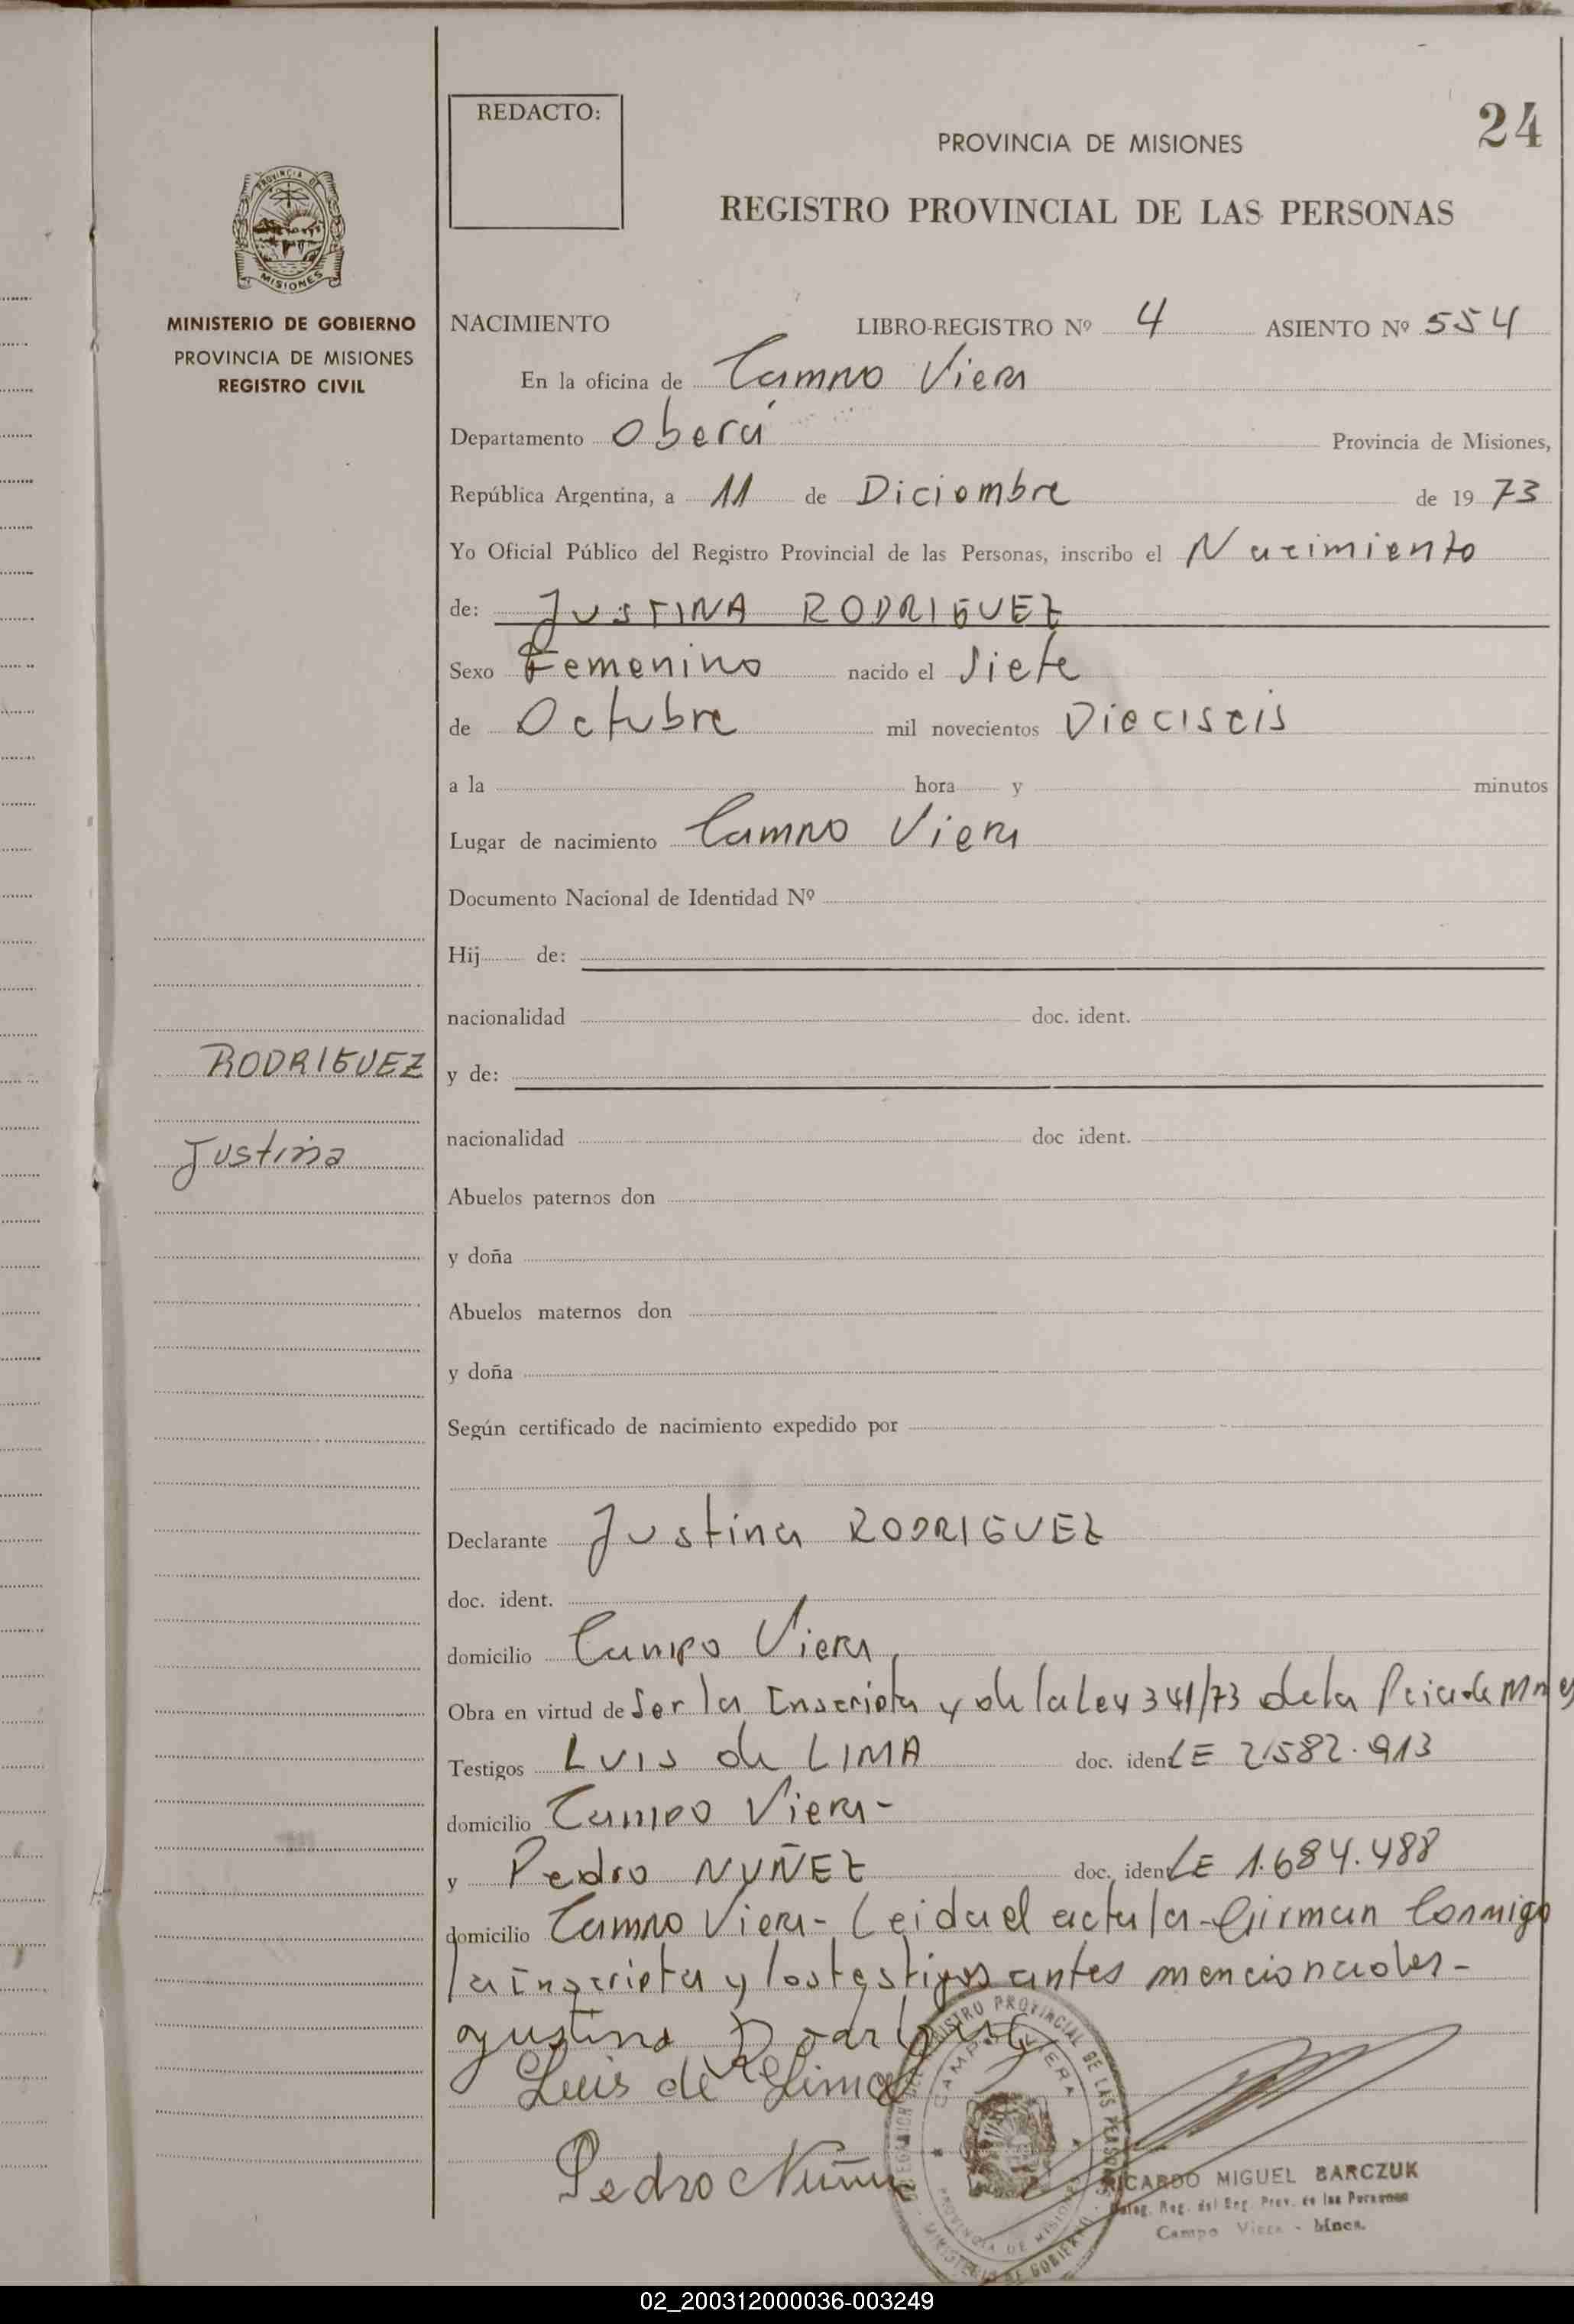 REDACTO:
24
PROVINCIA DE MISIONES
REGISTRO PROVINCIAL DE LAS PERSONAS
PROVINCIA DE
MISIONES
MINISTERIO DE GOBIERNO
PROVINCIA DE MISIONES
REGISTRO CIVIL
NACIMIENTO LIBRO-REGISTRO Nº 4 ASIENTO Nº 554
En la oficina de Campo Viera
Departamento Oberá Provincia de Misiones,
República Argentina, a 11 de Diciembre de 19 73
Yo Oficial Público del Registro Provincial de las Personas, inscribo el Nacimiento
de: JUSTINA RODRIGUEZ
Sexo Femenino nacido el Siete
de Octubre mil novecientos Dieciseis
a la hora y minutos
Lugar de nacimiento Campo Viera
Documento Nacional de Identidad Nº
Hij de:
nacionalidad doc. ident.
RODRIGUEZ
y de:
Justina
nacionalidad doc ident.
Abuelos paternos don
y doña
Abuelos maternos don
y doña
Según certificado de nacimiento expedido por
Declarante Justina RODRIGUEZ
doc. ident.
domicilio Campo Viera
Obra en virtud de Ser la Inscripta y de la Ley 341/73 de la Pcia de Mnes
Testigos LUIS de LIMA doc. ident LE 2.582.913
domicilio Campo Viera-
y Pedro NUÑEZ doc. ident LE 1.684.488
domicilio Campo Viera- Leida el acta la firman Conmigo
la inscripta y los testigos antes mencionados-
Justina Rodriguez
Luis de Lima
Pedro Nuñez
REGISTRO PROVINCIAL DE LAS PERSONAS
CAMPO VIERA
PROVINCIA DE MISIONES
MINISTERIO DE GOBIERNO
RICARDO MIGUEL BARCZUK
Deleg. Reg. del Reg. Prov. de las Personas
Campo Viera - Mnes.
02_200312000036-003249